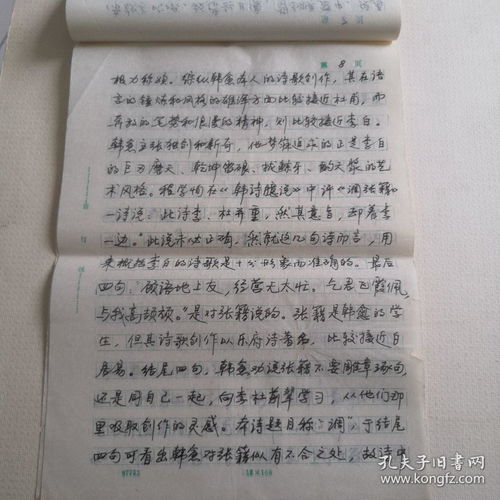 第 8 页
极力称颂。综纵韩愈本人的诗歌创作，其在语
言的锤炼和风格的雄浑方面比较接近杜甫，而
奔放的笔势和浪漫的精神，则比较接近李白。
韩愈主张独创和新奇，他梦寐追求的正是李白
的巨刃磨天、乾坤雷硠、拔鲸牙、酌天浆的艺
术风格。程学恂在《韩诗臆说》中评《调张籍》
一诗说："此诗李、杜并重，然其意旨，却着李
一边。"此说未必正确，然就这几句诗而言，用
来概括李白的诗歌是十分形象而准确的。最后
四句："顾语地上友，经营无太忙。乞君飞霞佩，
与我高颉颃。"是对张籍说的。张籍是韩愈的学
生，但其诗歌创作以乐府诗著名，比较接近白
居易。结尾四句，韩愈劝说张籍不要雕章琢句，
还是同自己一起，向李杜前辈学习，从他们那
里吸取创作的灵感。本诗题目称"调"，于结尾
四句可看出韩愈对张籍似有不合之处，故诗中
孔夫子旧书网